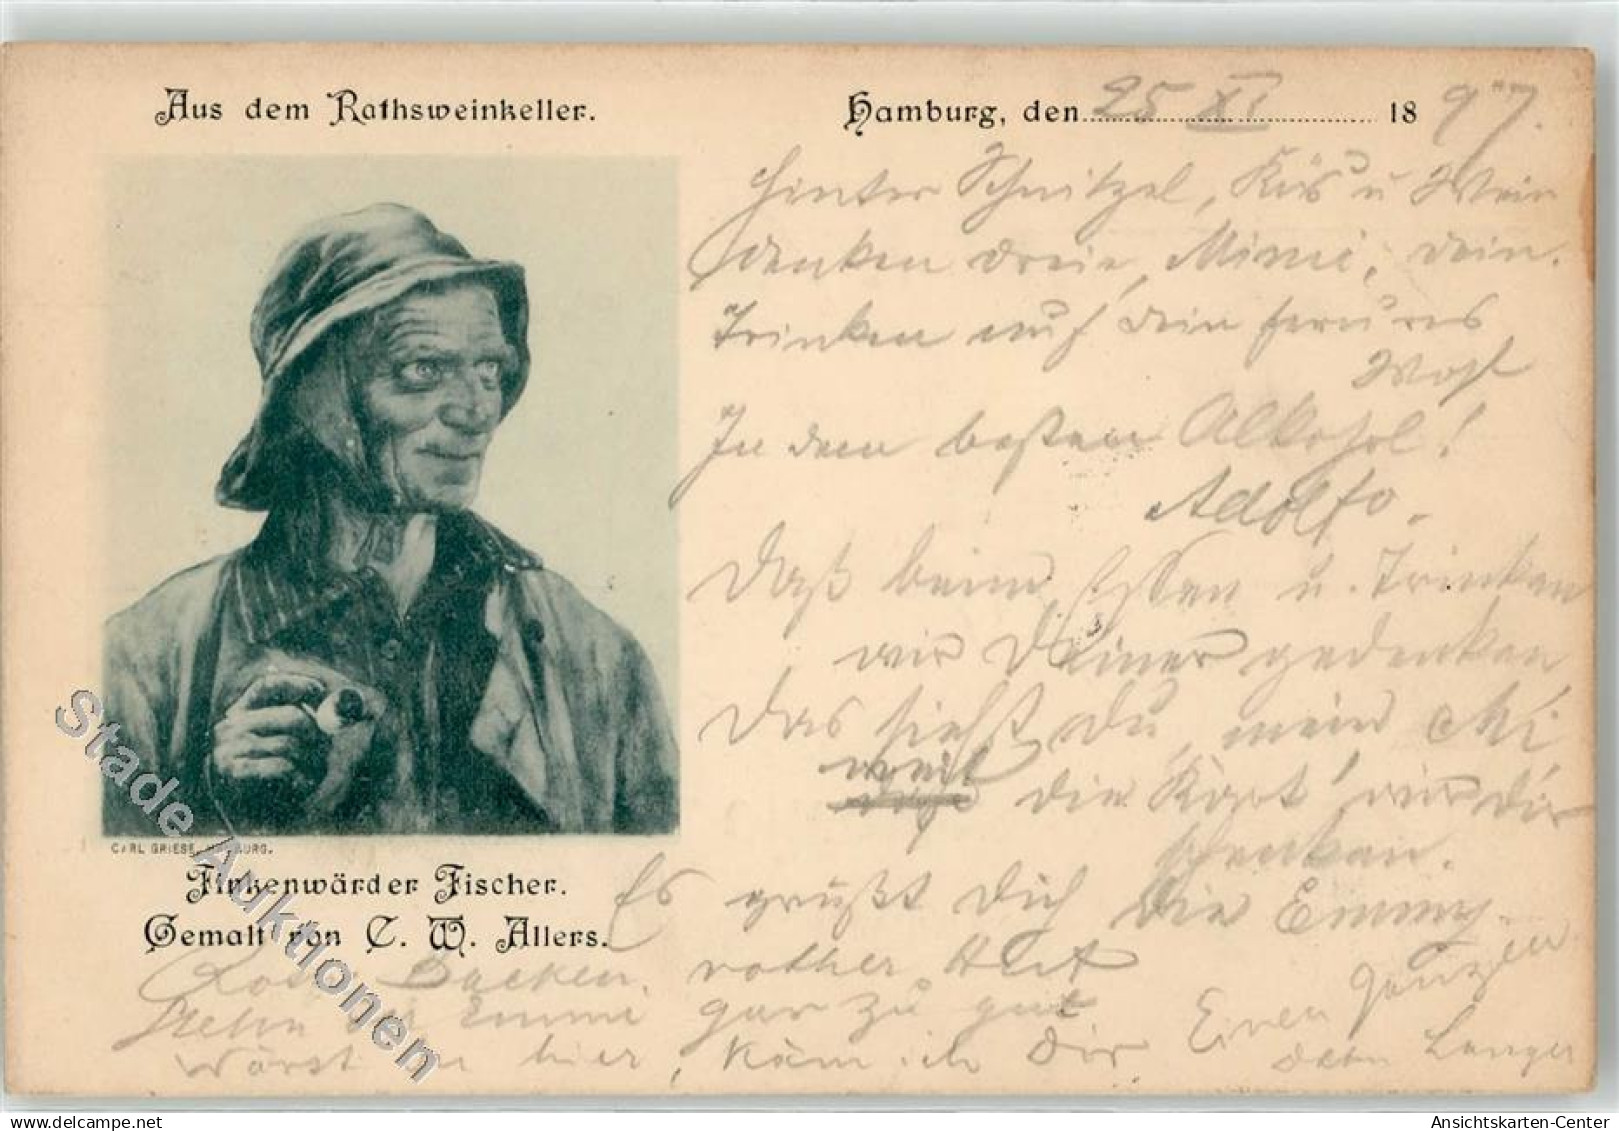 Aus dem Rathsweinkeller.
Hamburg, den 25 XI 1897.
Hinter Schnitzel, Käs u Wein
denken Dreie, Mimi, Dein.
Trinken auf Dein ferneres
Wohl
In dem besten Alkohol!
Adolfo.
Daß beim Essen u. Trinken
wir Deiner gedenken
Das siehst Du, mein Mi
weil
die Kart' wir Dir
schenken.
Es grüßt Dich Die Emmy.
Backen, rother Hut
Stehn der Emmi gar zu gut
Wärst Du hier, käm ich Dir
Einen ganzen
CARL GRIESE, HAMBURG.
Finkenwärder Fischer.
Gemalt von C. W. Allers.
Stade Auktionen
delcampe.net
Ansichtskarten-Center